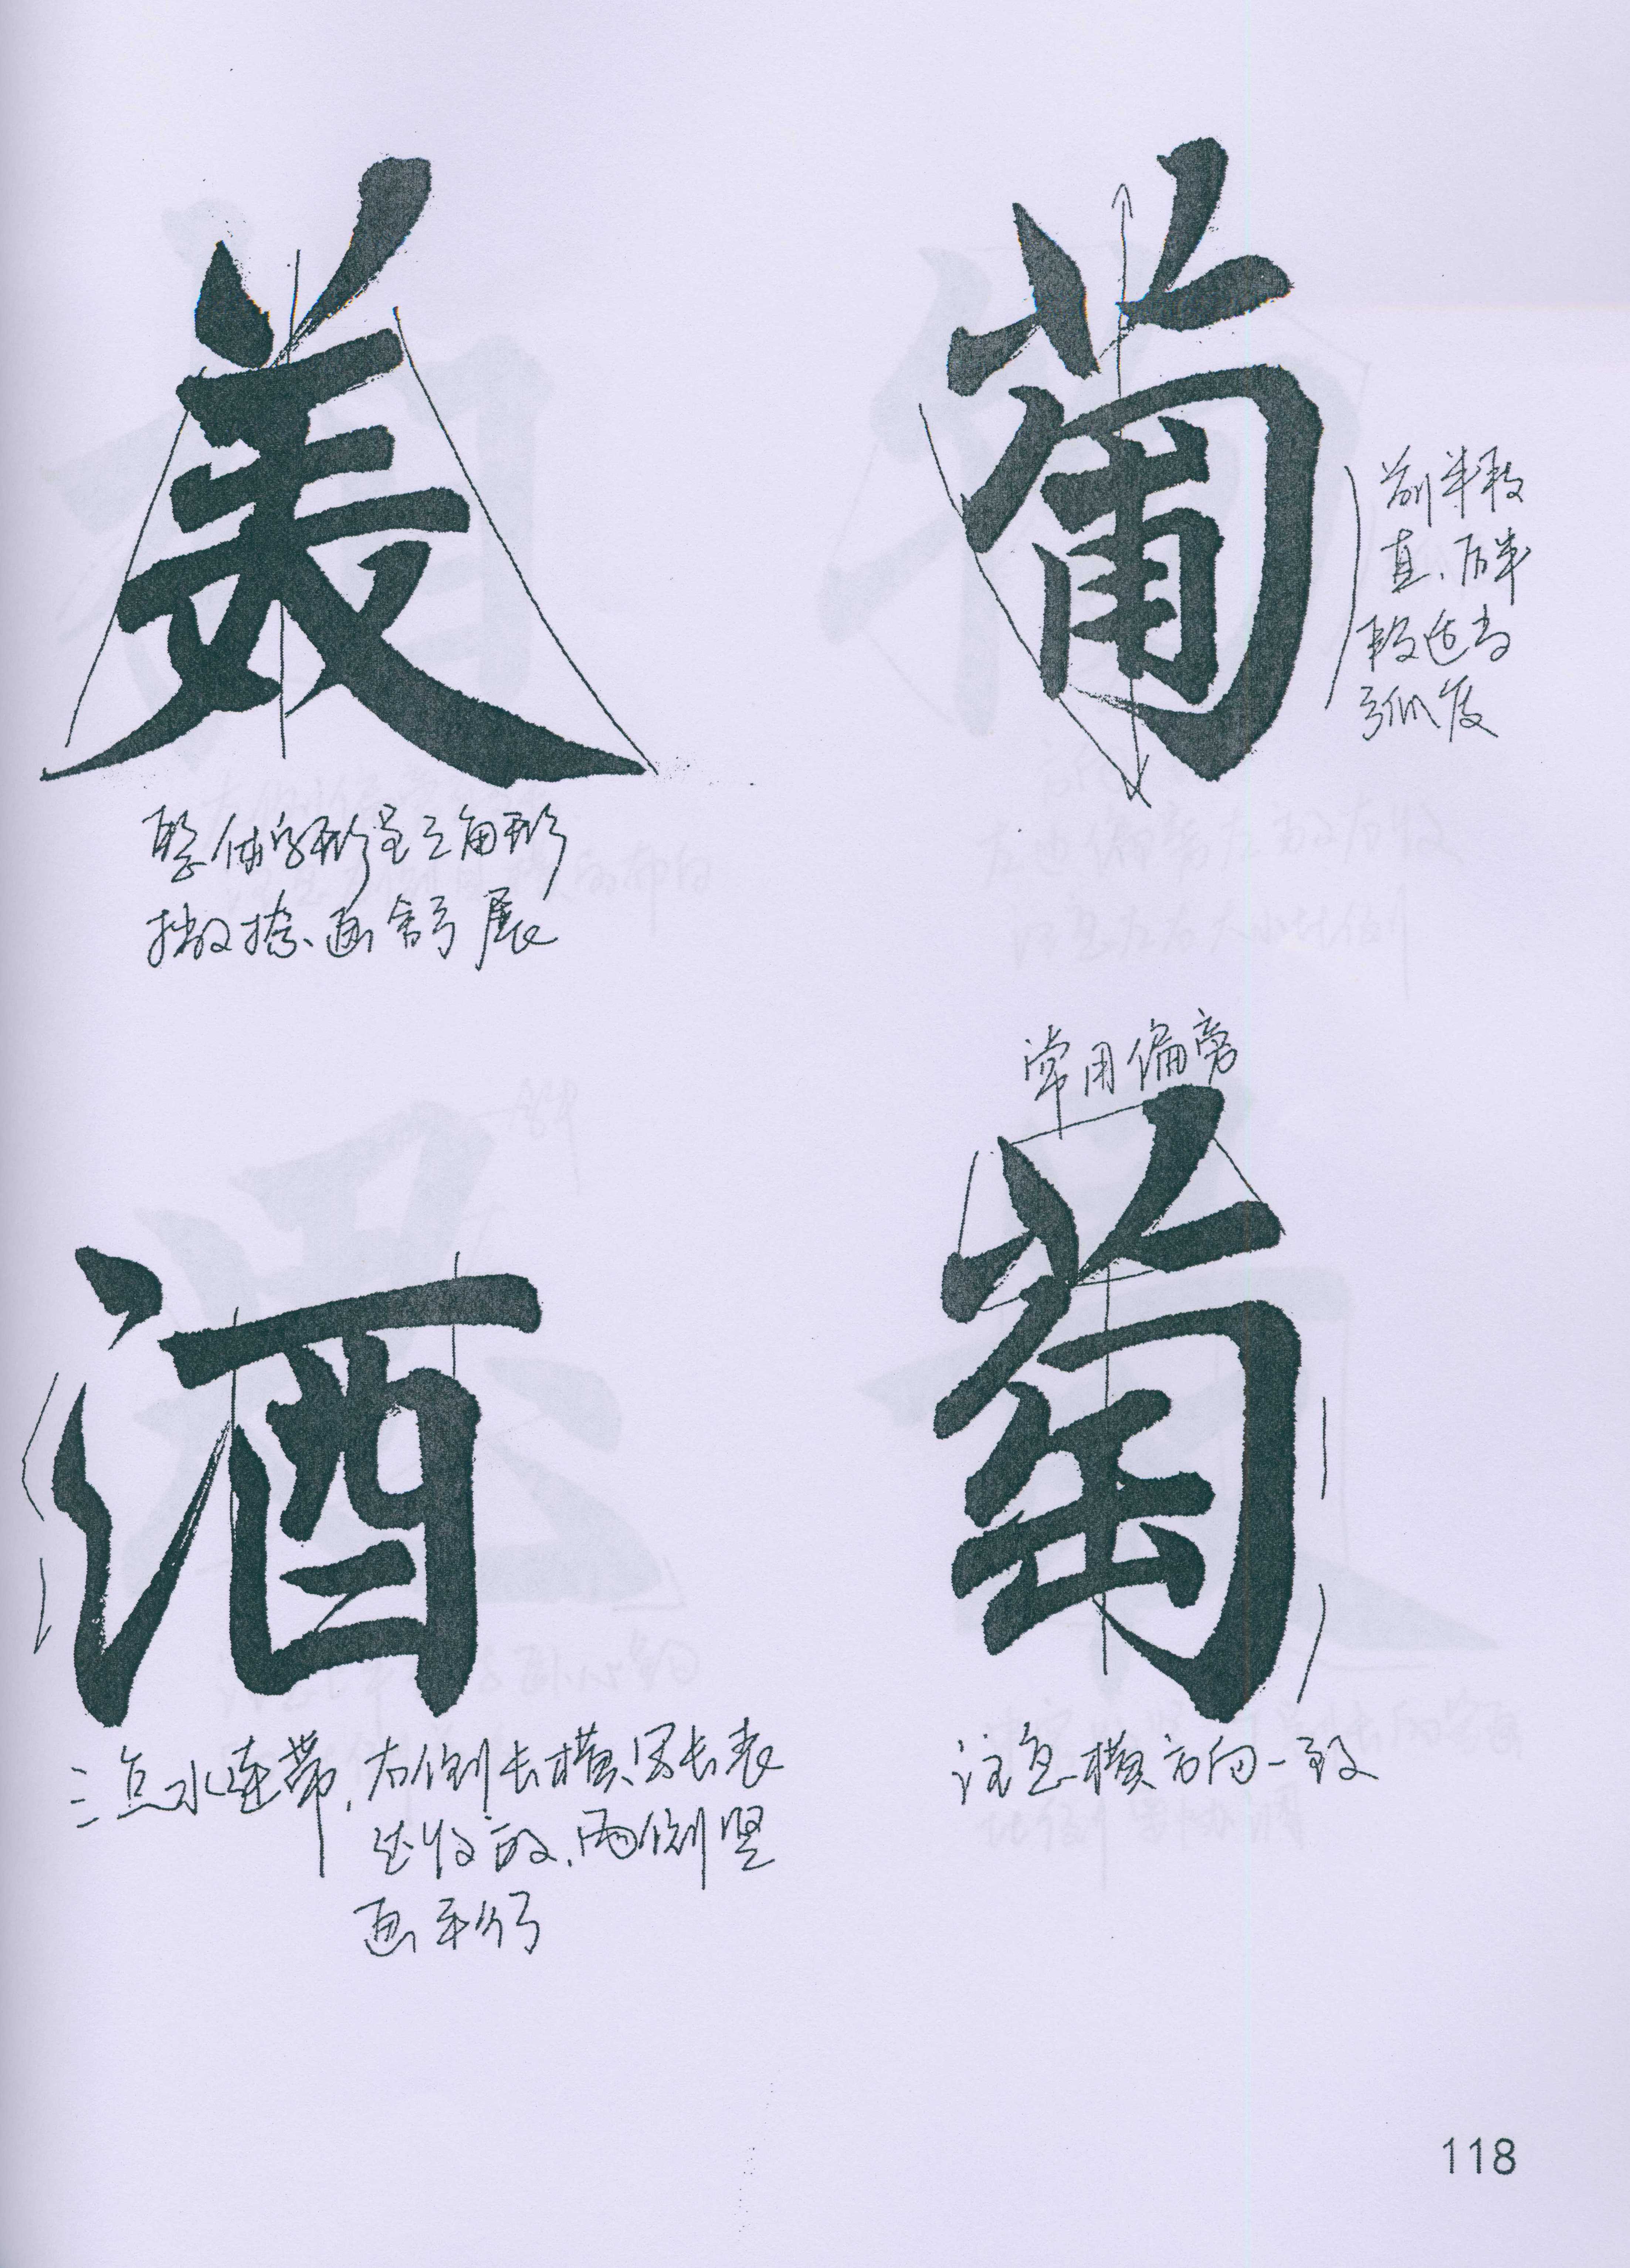 葡
前半段
直、后半
段适当
弧度
美
整体字形呈三角形
撇捺、画舒展
常用偏旁
萄
注意横方向一致
酒
三点水连带,右侧长横、写长表
达收放,两侧竖
画平行
118